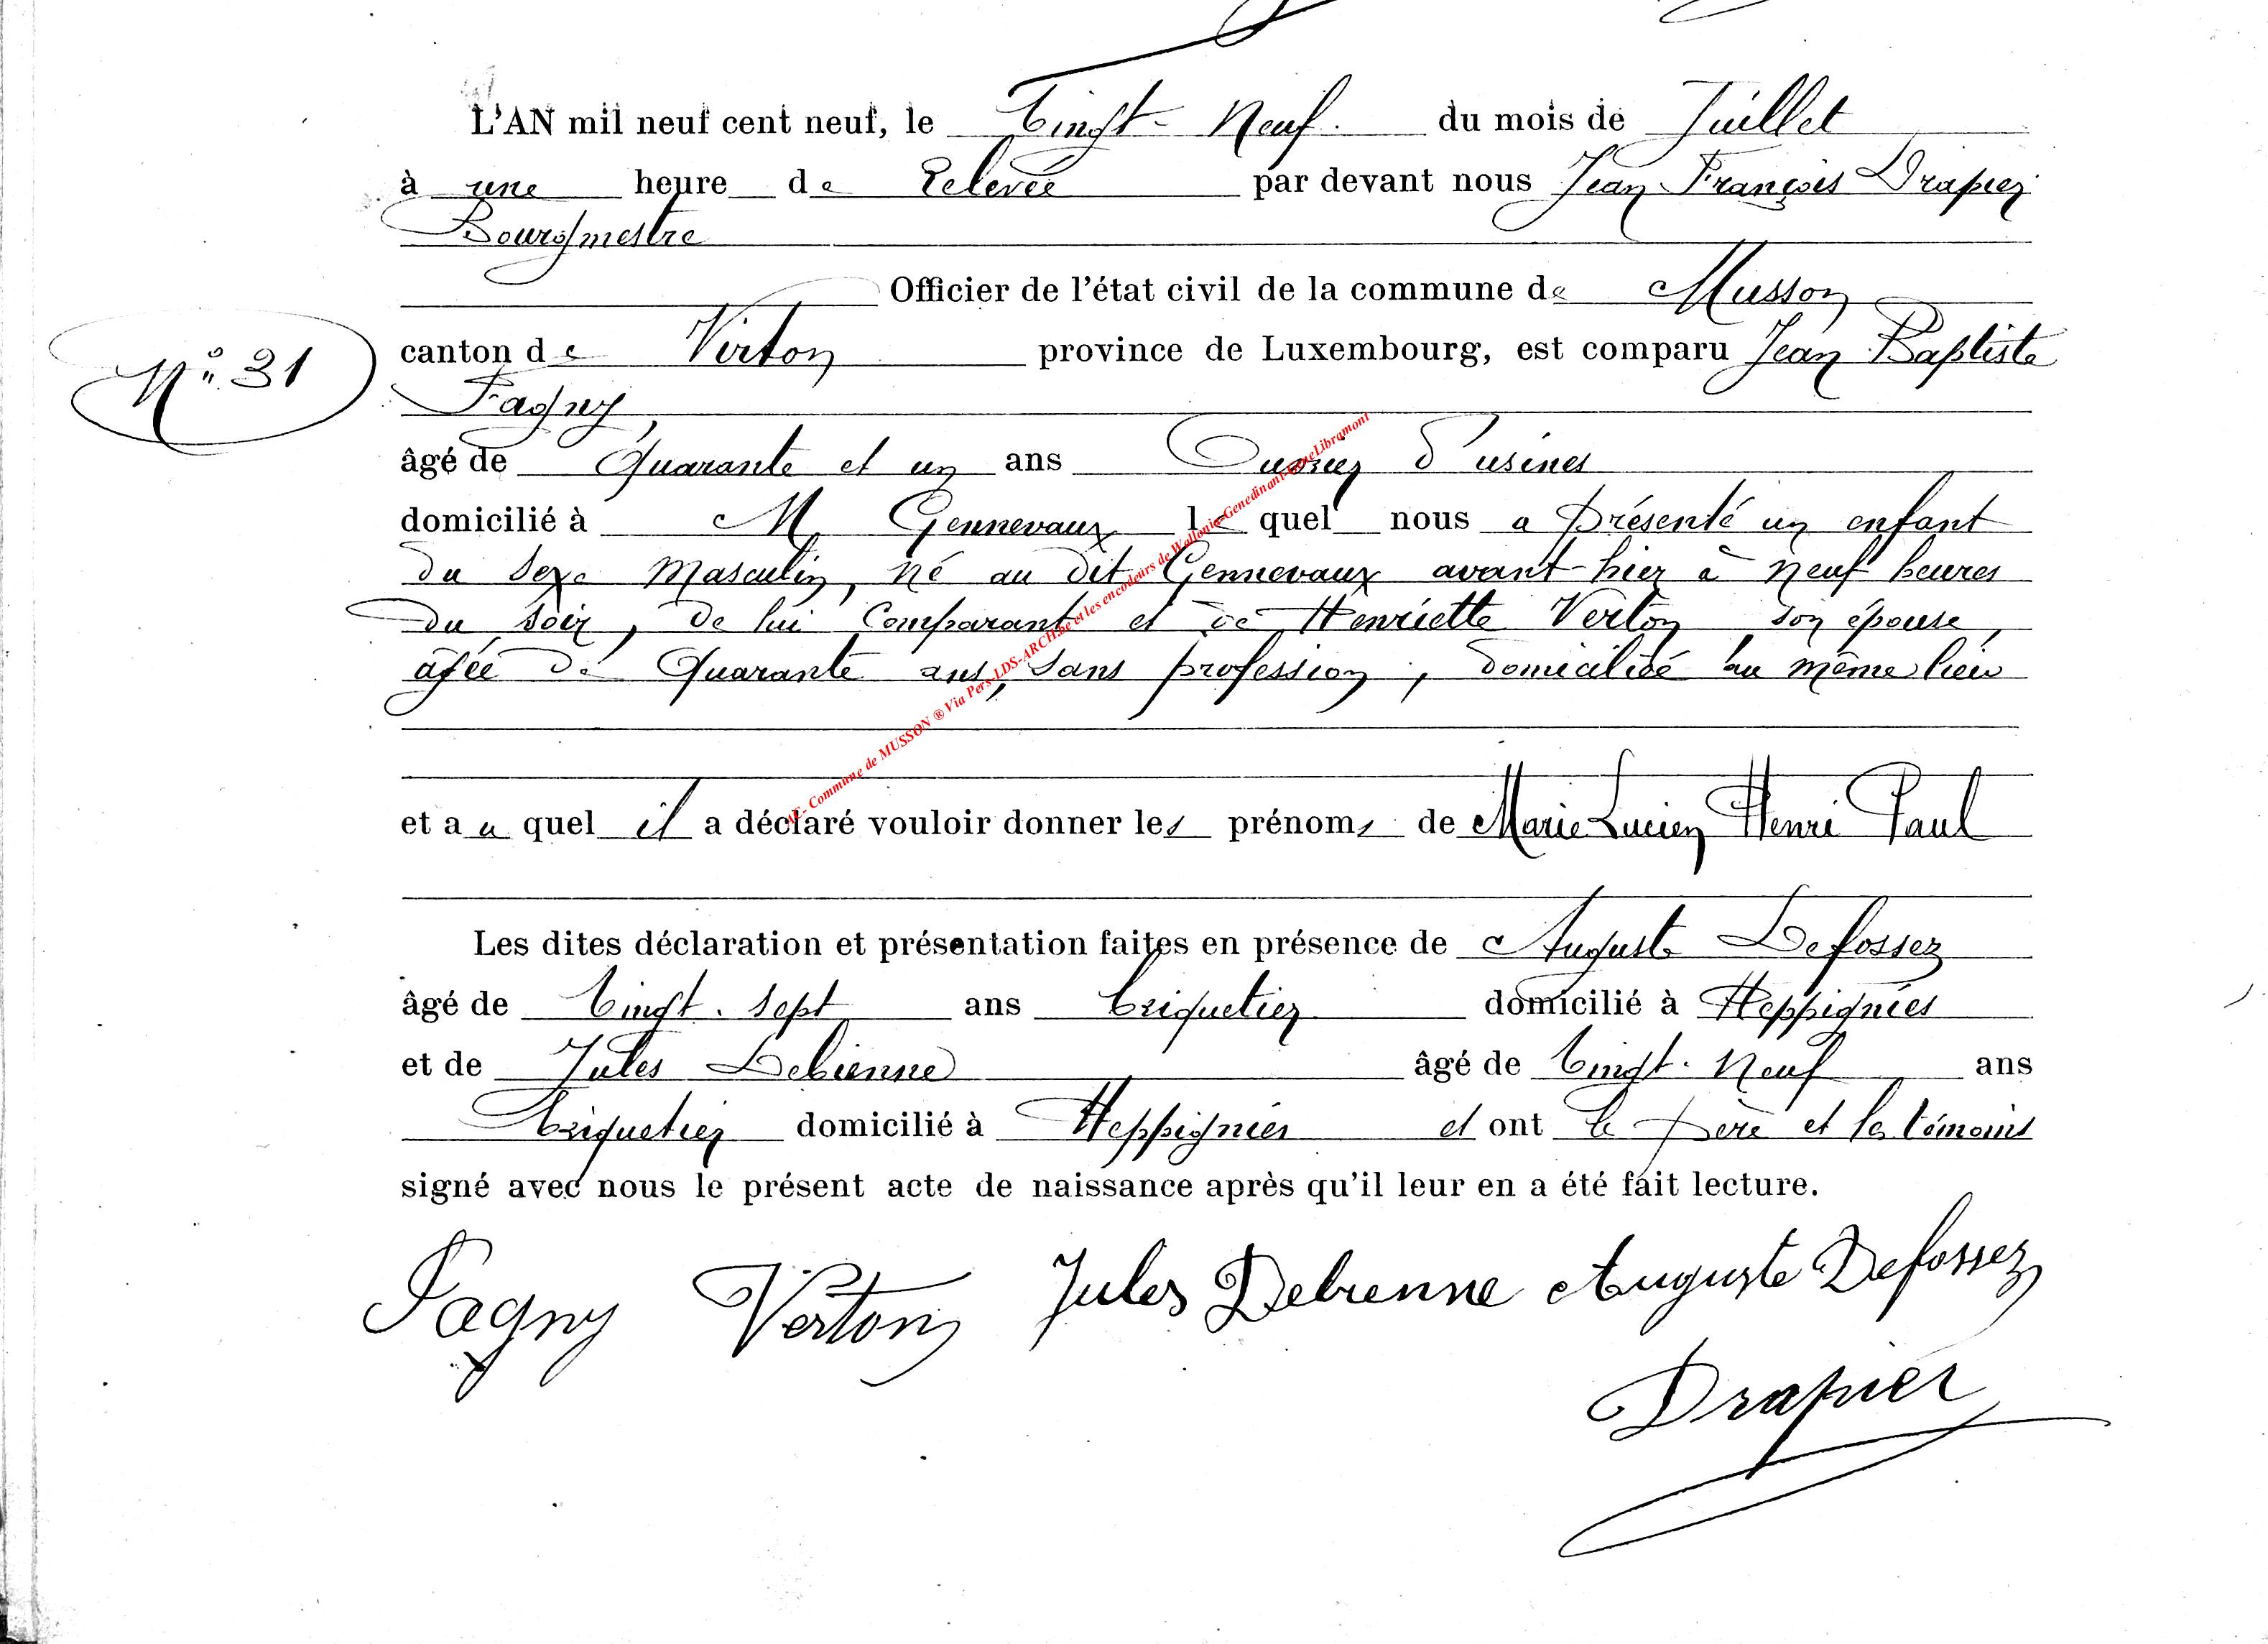 L'AN mil neuf cent neuf, le Vingt-Neuf. du mois de Juillet
à une heure de Relevée par devant nous Jean François Drapier
Bourgmestre
Officier de l'état civil de la commune de Musson
N° 31
canton de Virton province de Luxembourg, est comparu Jean Baptiste
Fagny,
âgé de Quarante et un ans Ouvrier d'usines
domicilié à Gennevaux lequel nous a présenté un enfant
du sexe Masculin, né au dit Gennevaux avant-hier à neuf heures
du soir, de lui Comparant et de Henriette Verton son épouse,
âgée de Quarante ans, sans profession, domiciliée au même lieu
et au quel il a déclaré vouloir donner les prénoms de Marie Lucien Henri Paul
Les dites déclaration et présentation faites en présence de Auguste Defossez
âgé de Vingt-sept ans briquetier domicilié à Heppignies
et de Jules Debienne âgé de Vingt-Neuf ans
briquetier domicilié à Heppignies et ont le père et les témoins
signé avec nous le présent acte de naissance après qu'il leur en a été fait lecture.
Fagny Verton Jules Debienne Auguste Defossez
Drapier
AC- Commune de MUSSON ® Via Pers-LDS-ARCH.be et les encodeurs de Wallonia-Genedinant-GeneLibramont